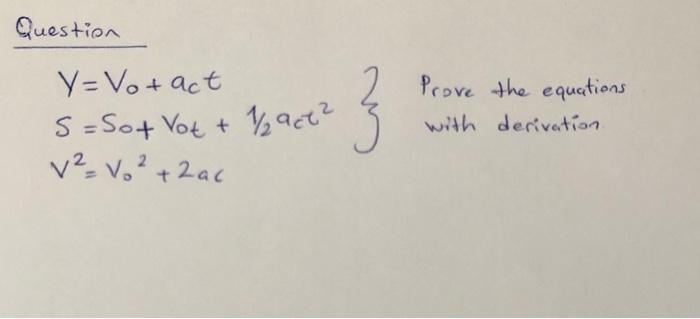 Question
V = V₀ + act
S = S₀ + V₀t + 1/2 act²
V² = V₀² + 2ac
} Prove the equations
with derivation.